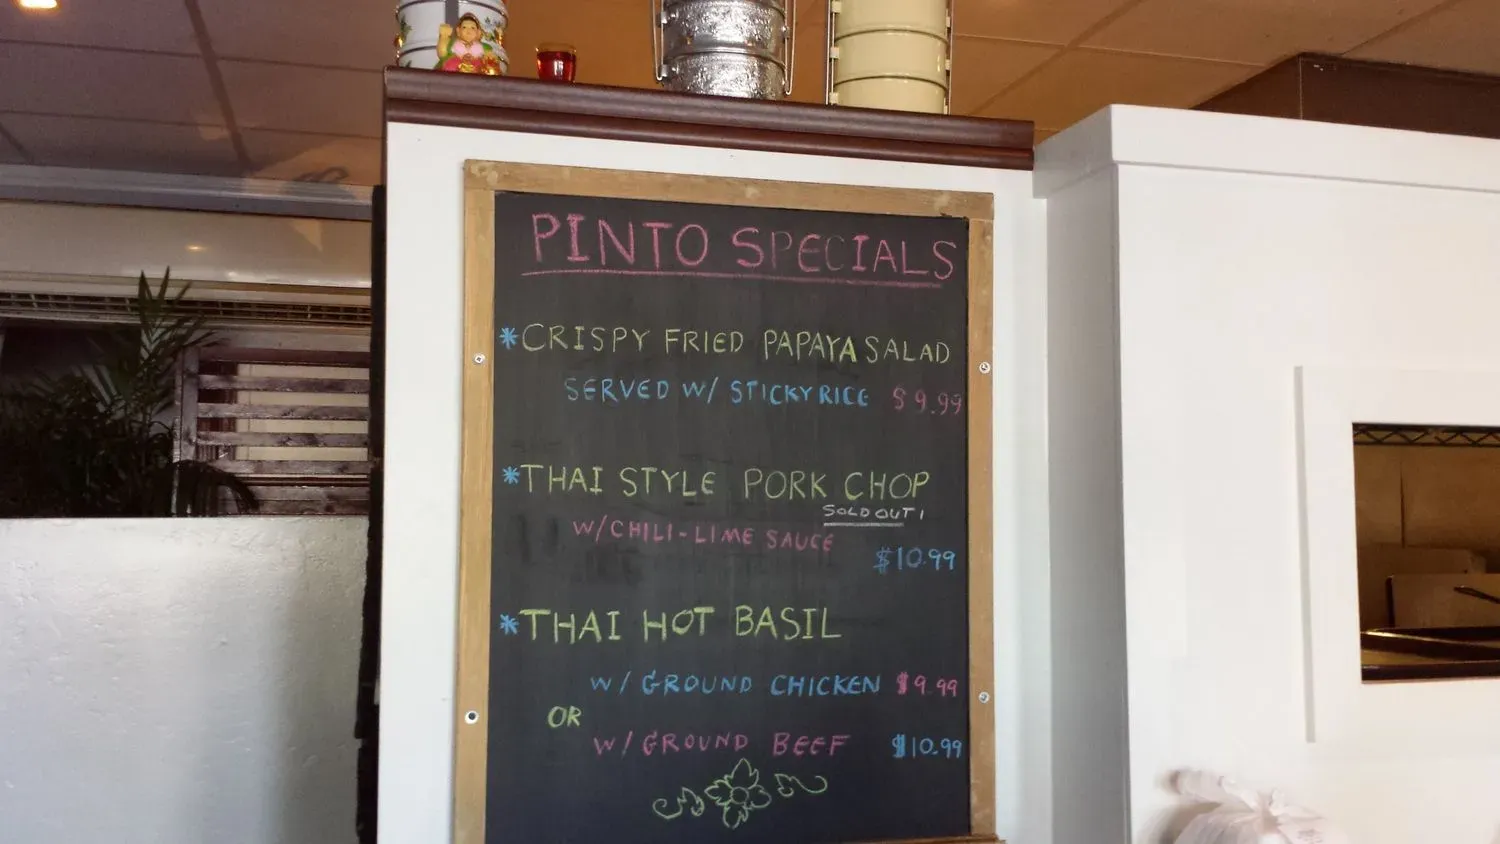 PINTO SPECIALS
*CRISPY FRIED PAPAYA SALAD
SERVED W/ STICKY RICE $9.99
*THAI STYLE PORK CHOP
SOLD OUT!
W/CHILI-LIME SAUCE
$10.99
*THAI HOT BASIL
W/ GROUND CHICKEN $9.99
OR
W/ GROUND BEEF $10.99